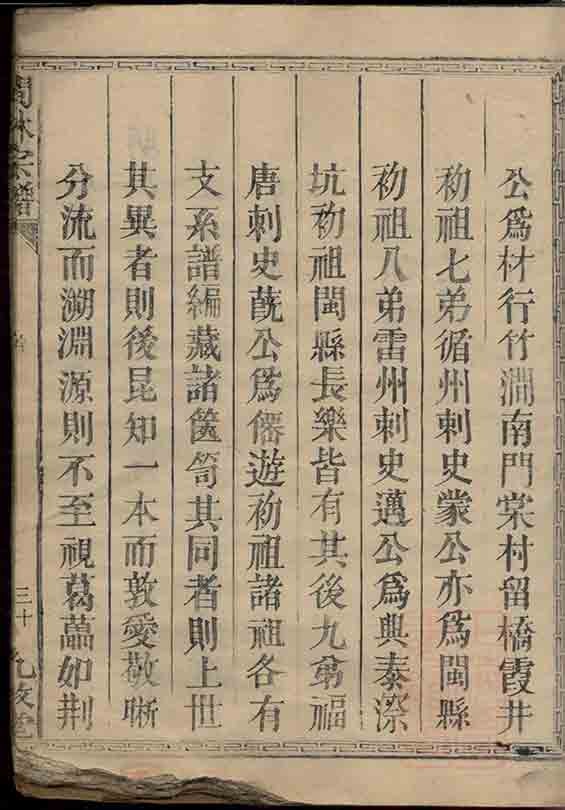 公爲材行竹澗南門棠村留橋霞井
初祖七弟循州刺史蒙公亦爲閩縣
初祖八弟雷州刺史邁公爲興泰漈
坑初祖閩縣長樂皆有其後九弟福
唐刺史蕆公爲僊遊初祖諸祖各有
支系譜編藏諸篋笥其同者則上世
其異者則後昆知一本而敦愛敬晰
分流而溯淵源則不至視葛藟如荆
林宗譜
三十